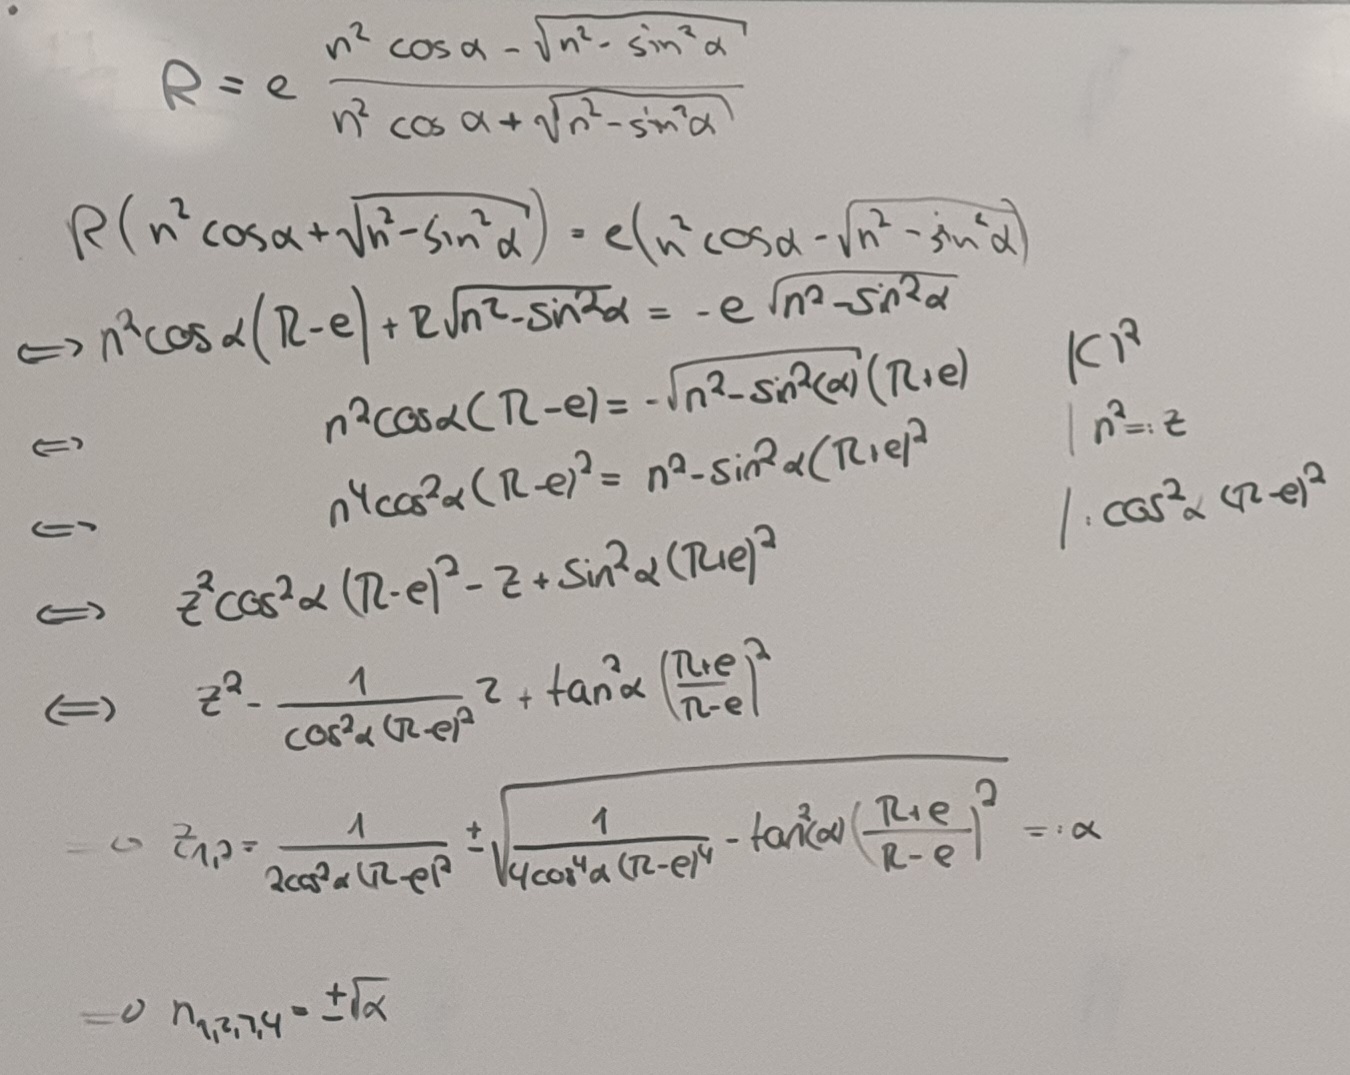 R = e (n² cos α - √(n² - sin² α)) / (n² cos α + √(n² - sin² α))
R(n² cos α + √(n² - sin² α)) = e(n² cos α - √(n² - sin² α))
⇔ n² cos α (R - e) + R√(n² - sin² α) = -e √(n² - sin² α)
⇔ n² cos α (R - e) = -√(n² - sin²(α)) (R + e) |( )²
⇔ n⁴ cos² α (R - e)² = n² - sin² α (R + e)² | n² =: z
⇔ z² cos² α (R - e)² - z + sin² α (R + e)² | : cos² α (R - e)²
⇔ z² - 1/(cos² α (R - e)²) z + tan² α ((R + e)/(R - e))²
⇒ z₁,₂ = 1/(2cos² α (R - e)²) ± √(1/(4cos⁴ α (R - e)⁴) - tan²(α) ((R + e)/(R - e))²) =: α
⇒ n₁,₂,₃,₄ = ±√α